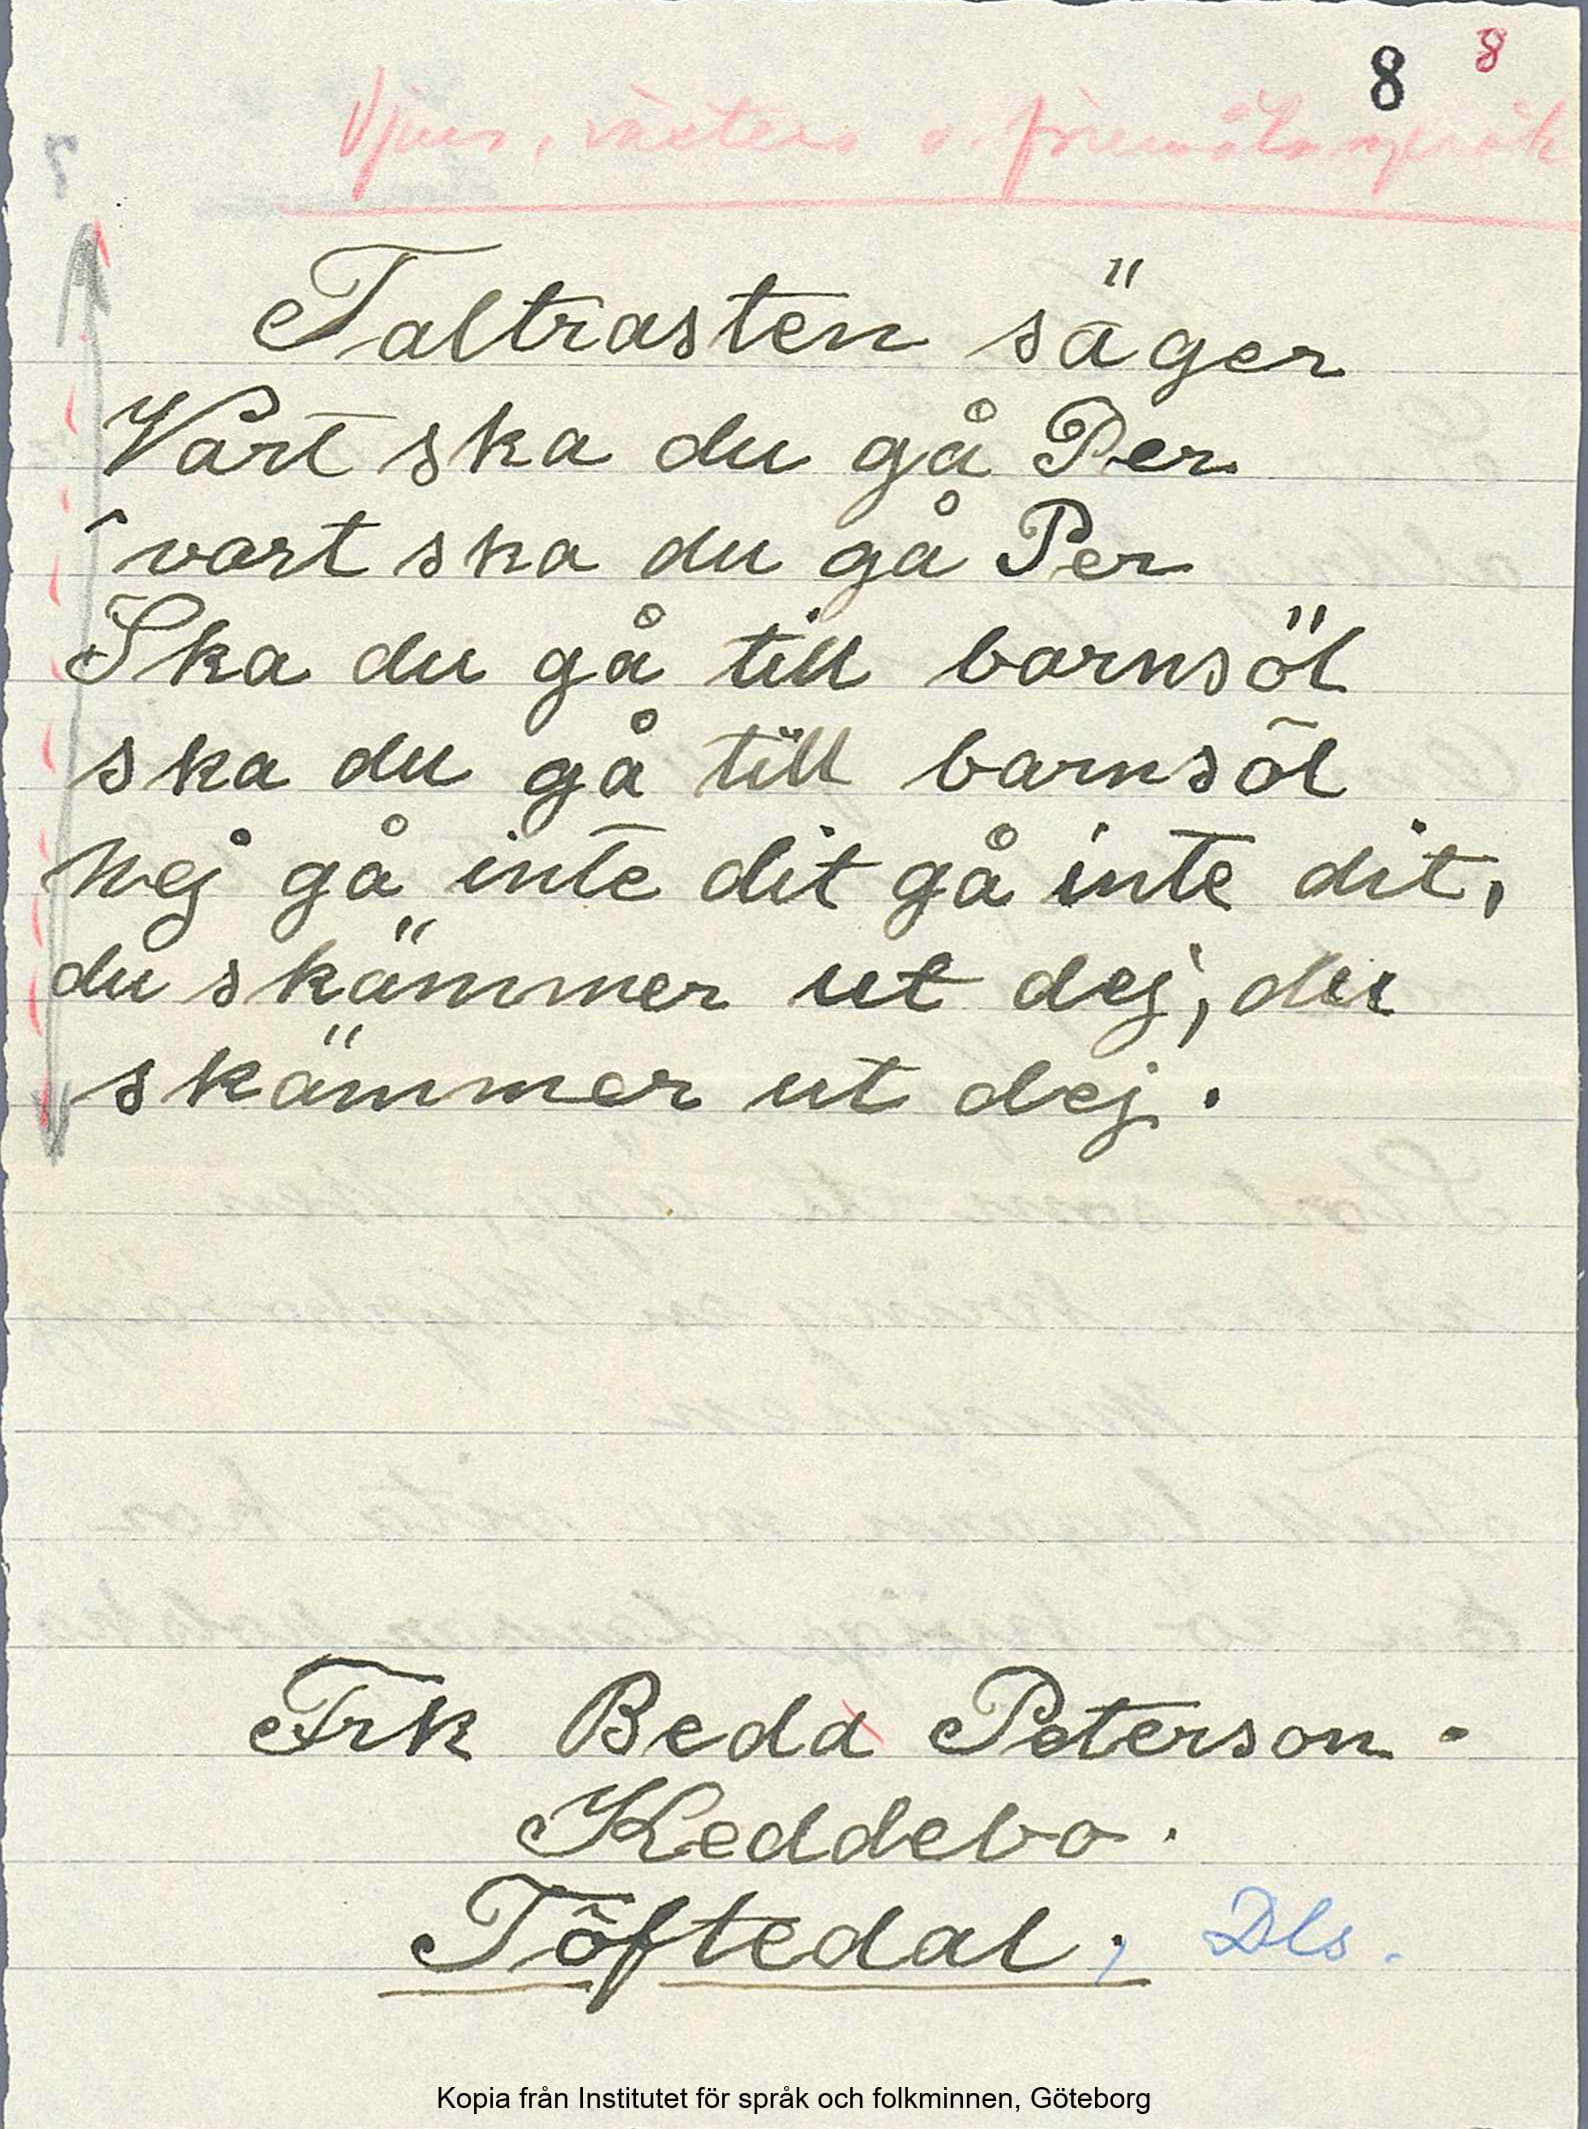 8 8
växter o. föremåls språk
Taltrasten säger
Vart ska du gå Per
vart ska du gå Per
Ska du gå till barnsöl
ska du gå till barnsöl
Nej gå inte dit gå inte dit,
du skämmer ut dej, du
skämmer ut dej.
Frk Beda Peterson.
Keddebo.
Töftedal, Dls.
Kopia från Institutet för språk och folkminnen, Göteborg